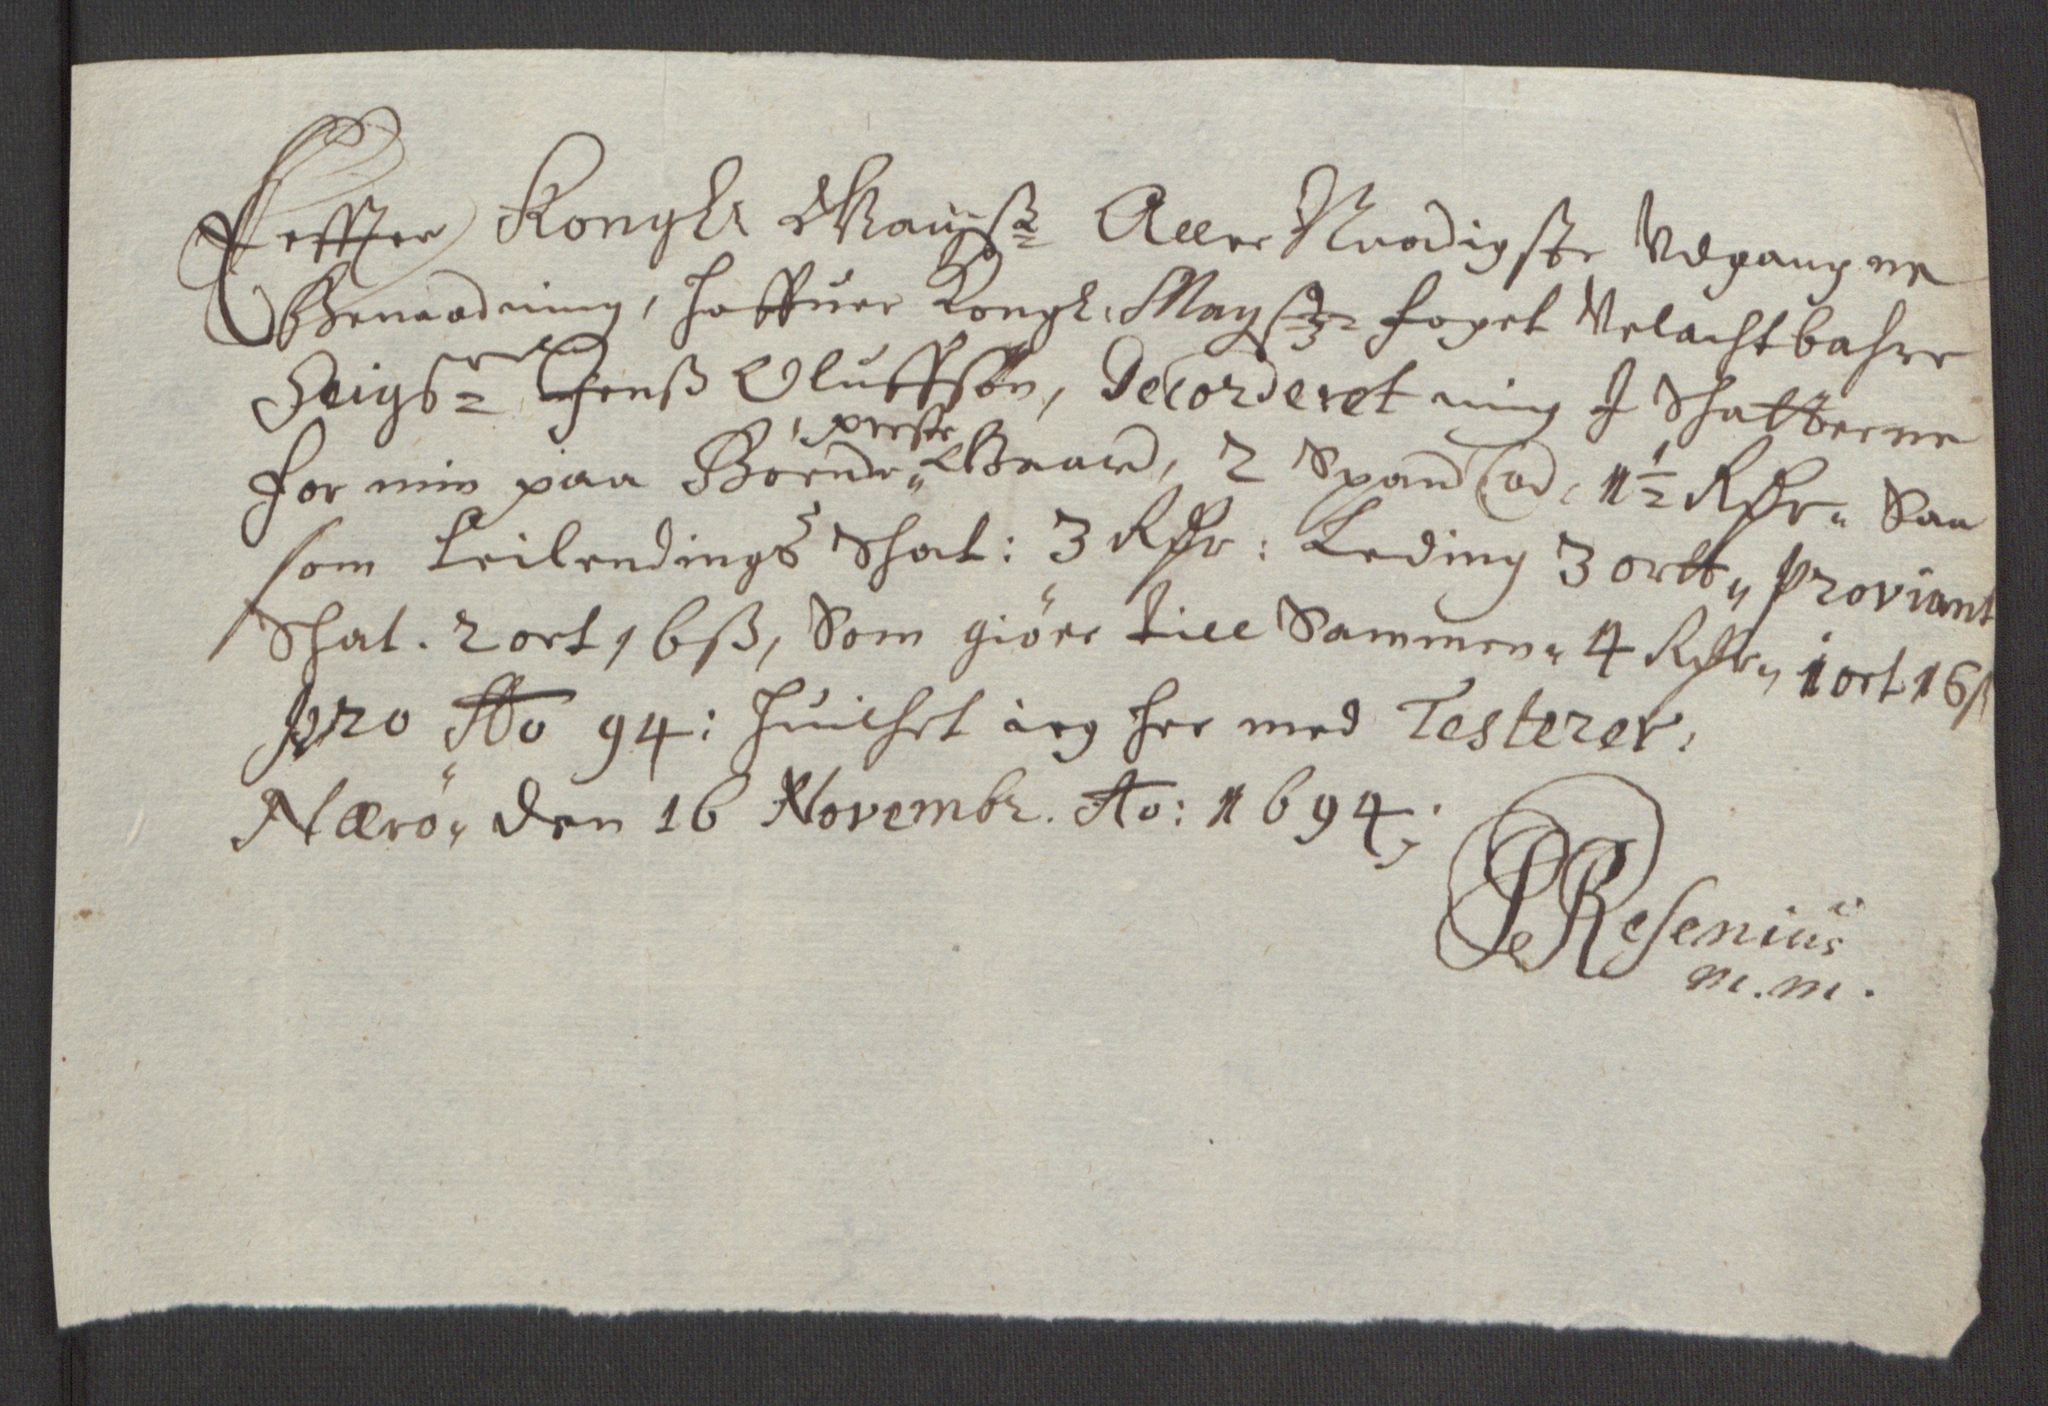 Effter Kongl: Mayſz Aller Naadigste Udgangne
Benaadning, haffuer Kongl: Mayſz foget Velachtbahre
Jens Oluffsön, Decorderet mig I Skatterne
for min paa Boende Gaard, 2 Spand 1½ Rdr. Saa
preste
som Leilendings Skat: 3 Rdr: Leding 3 ort, proviant
Skat. 2 ort 16ß, Som giöre till Sammen 4 Rdr, 1 ort 16ß
pro Ao 94: huilket ieg her med Testerer,
Nærö, den 16 Novembr. Ao: 1694;
Resenius
m.m.